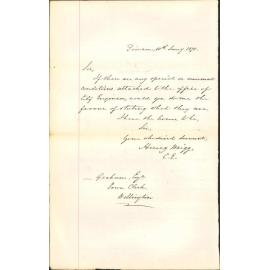 Sir,
If there are any special or unusual
conditions attached to the office of
City Engineer, would you do me the
favour of stating what they are.
I have the honor to be,
Sir,
Your obedient servant,
C.E.
Graham, Esqre
Town Clerk
Wellington